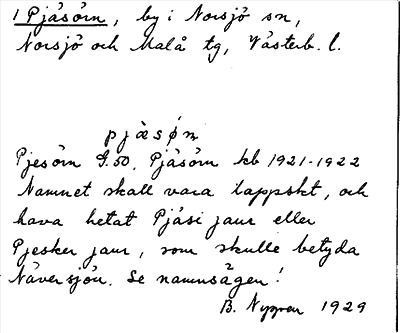 1 Pjäsörn, by i Norsjö sn,
Norsjö och Malå tg, Västerb. l.
pjæsøɳ
Pjesörn G.50. Pjäsörn kb 1921-1922
Namnet skall vara lappskt, och
hava hetat Pjäsi jaur eller
Pjesker jaur, som skulle betyda
Näversjön. Se namnsägen!
B. Nygren 1929